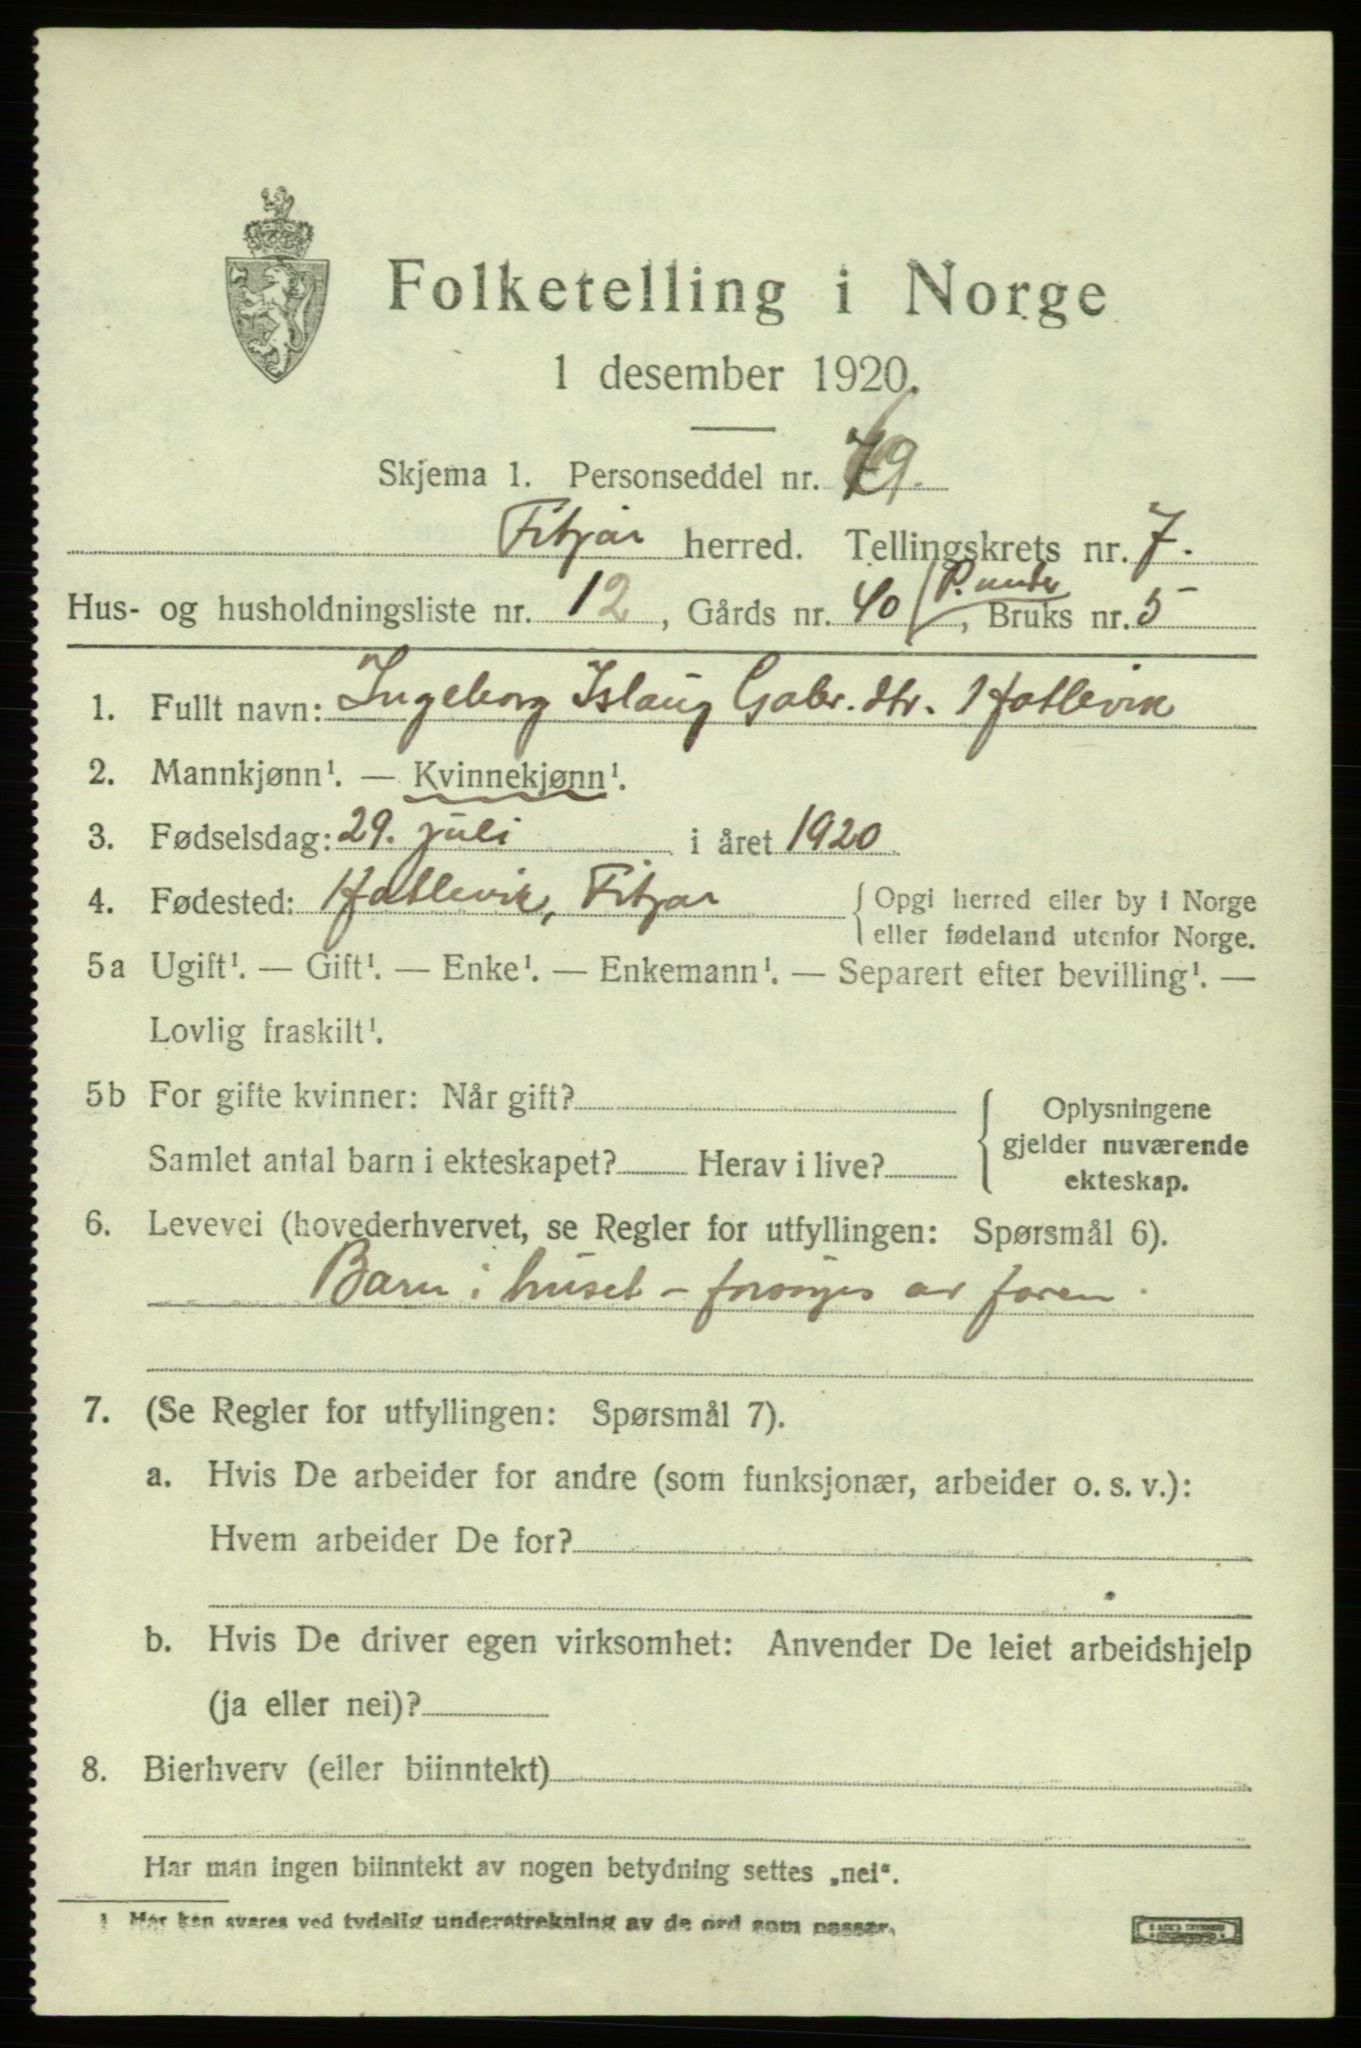 Folketelling i Norge
1 desember 1920.
Skjema 1. Personseddel nr. 69.
Fitjar herred. Tellingskrets nr. 7.
Hus- og husholdningsliste nr. 12, Gårds nr. 40 / P. under, Bruks nr. 5
1. Fullt navn: Ingeborg Islaug Gabr.dtr. Hatlevik
2. Mannkjønn¹. — Kvinnekjønn¹.
3. Fødselsdag: 29. juli i året 1920
4. Fødested: Hatlevik, Fitjar { Opgi herred eller by i Norge
eller fødeland utenfor Norge.
5a Ugift¹. — Gift¹. — Enke¹. — Enkemann¹. — Separert efter bevilling¹. —
Lovlig fraskilt¹.
5b For gifte kvinner: Når gift?
Samlet antal barn i ekteskapet? Herav i live?
Oplysningene
gjelder nuværende
ekteskap.
6. Levevei (hovederhvervet, se Regler for utfyllingen: Spørsmål 6).
Barn i huset – forsørges av faren.
7. (Se Regler for utfyllingen: Spørsmål 7).
a. Hvis De arbeider for andre (som funksjonær, arbeider o. s. v.):
Hvem arbeider De for?
b. Hvis De driver egen virksomhet: Anvender De leiet arbeidshjelp
(ja eller nei)?
8. Bierhverv (eller biinntekt)
Har man ingen biinntekt av nogen betydning settes „nei“.
¹ Her kan svares ved tydelig understrekning av de ord som passer.